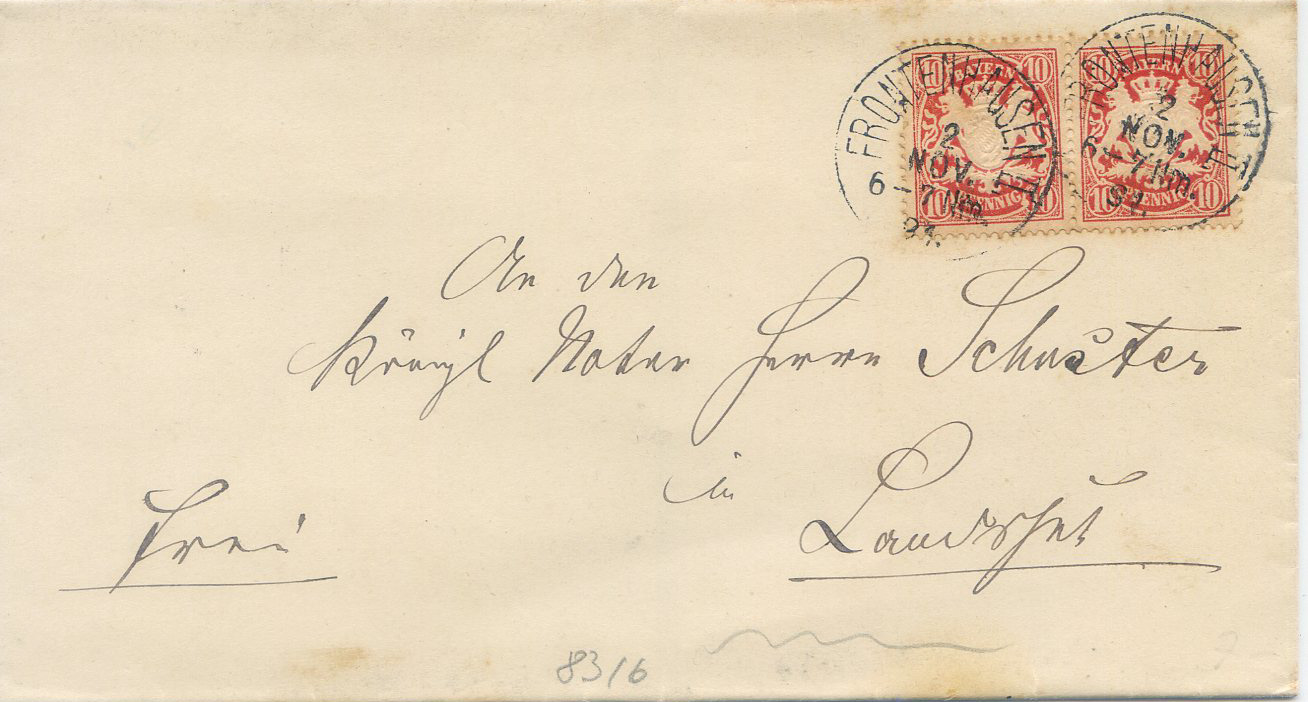 FRONTENHAUSEN II
2
NOV.
6-7Nm.
91.
FRONTENHAUSEN II
2
NOV.
6-7Nm.
91.
10 BAYERN 10
10 PFENNIG 10
10 BAYERN 10
10 PFENNIG 10
An den
Königl Notar Herrn Schuster
in
Landshut
Frei
83/6